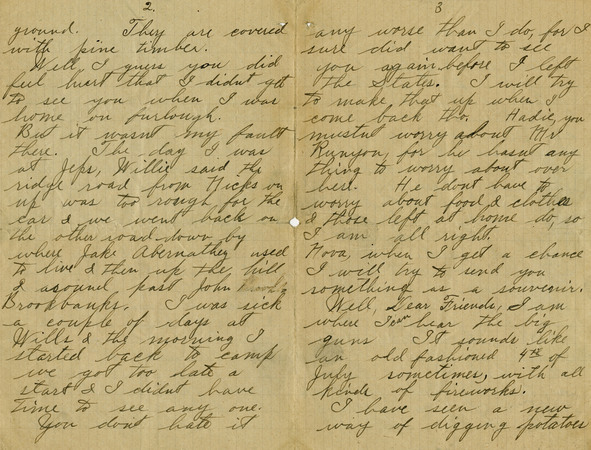 2.
ground. They are covered
with pine timber.
Well, I guess you did
feel hurt that I didnt get
to see you when I was
home on furlough.
But it wasnt my fault
there. The day I was
at Jeps, Willie said the
ridge road from Hicks on
up was too rough for the
car & we went back on
the other road down by
where Jake Abernathey used
to live & then up the hill
& around past John
Brookbanks. I was sick
a couple of days at
Wills & the morning I
started back to camp
we got too late a
start & I didnt have
time to see any one.
You dont hate it
3
any worse than I do, for I
sure did want to see
you again before I left
the States. I will try
to make that up when I
come back tho. Hadie, you
mustnt worry about Mr
Runyon, for he hasnt any
thing to worry about over
here. He dont have to
worry about food & clothes
& those left at home do, so
I am all right.
Hova, when I get a chance
I will try to send you
something as a souvenir.
Well, Dear Friends, I am
where I can hear the big
guns It sounds like
an old fashioned 4th of
July sometimes, with all
kinds of fireworks.
I have seen a new
way of digging potatoes